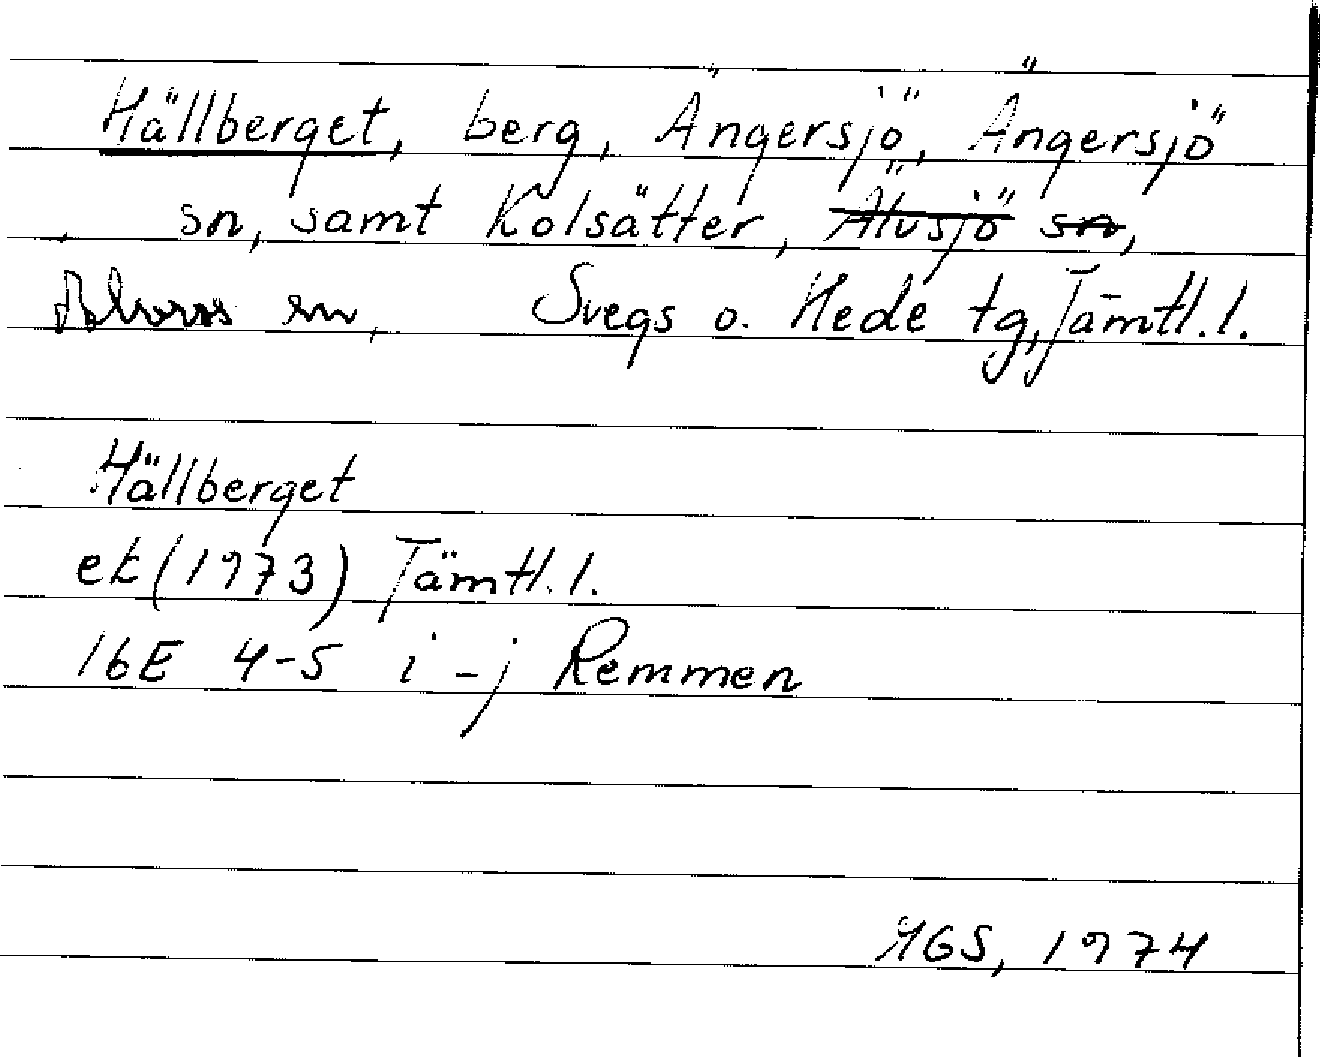 Hällberget, berg, Ängersjö, Ängersjö
sn, samt Kolsätter, Älvsjö sn,
sn, Svegs o. Hede tg, Jämtl. l.
Hällberget
ek (1973) Jämtl. l.
16E 4-5 i - j Remmen
MGS, 1974